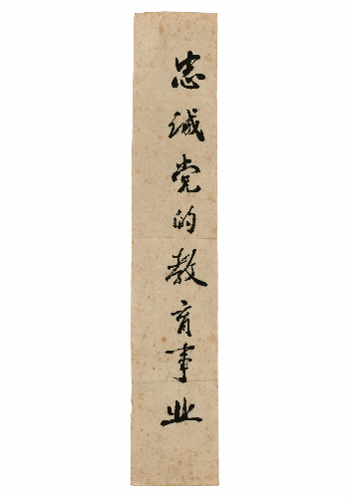 忠诚党的教育事业